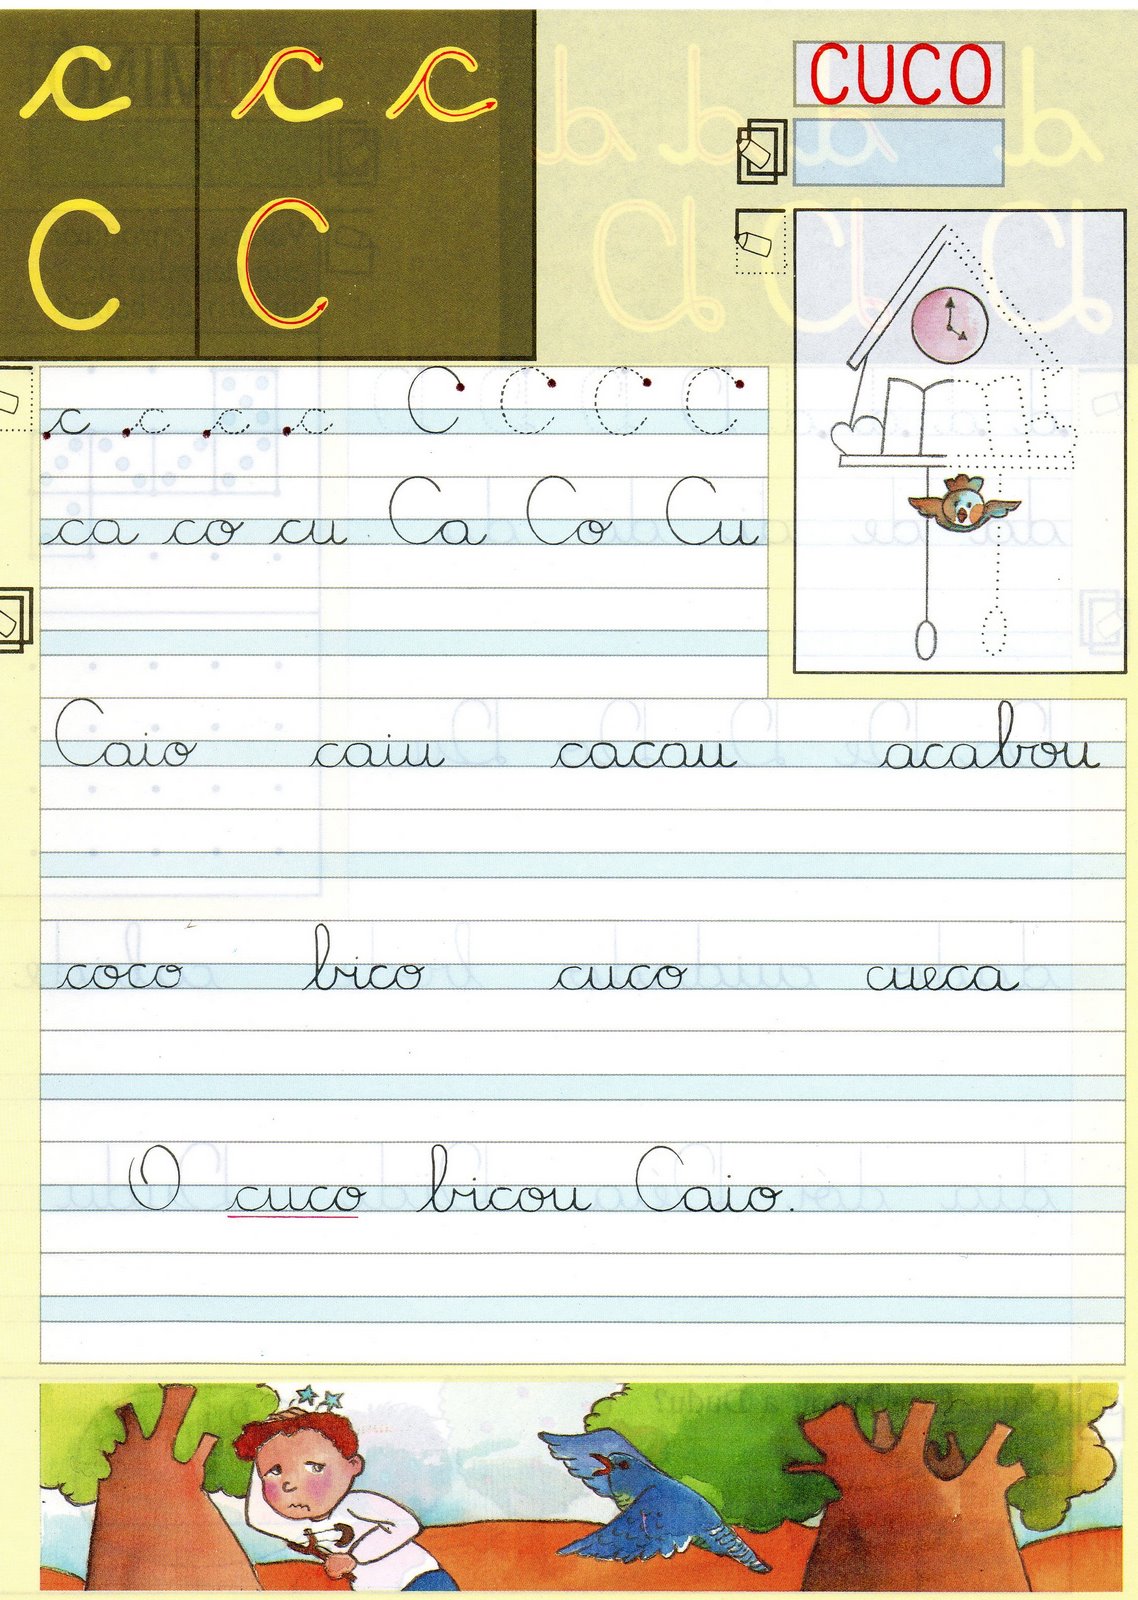 c c c
CUCO
C C
c c c c C C C C
ca co cu Ca Co Cu
Caio caiu cacau acabou
coco bico cuco cueca
O cuco bicou Caio.